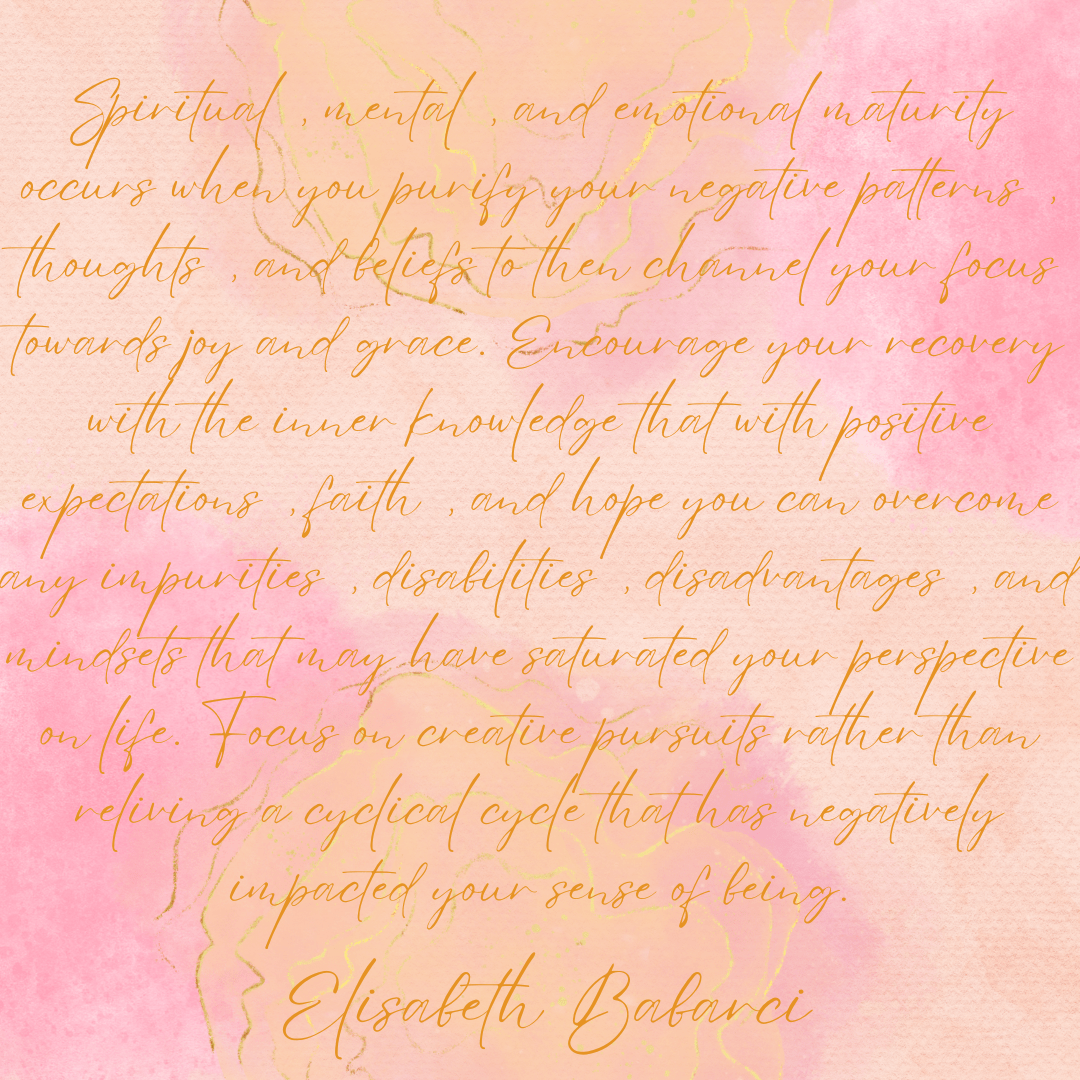 Spiritual , mental , and emotional maturity
occurs when you purify your negative patterns ,
thoughts , and beliefs to then channel your focus
towards joy and grace. Encourage your recovery
with the inner knowledge that with positive
expectations , faith , and hope you can overcome
any impurities , disabilities , disadvantages , and
mindsets that may have saturated your perspective
on life. Focus on creative pursuits rather than
reliving a cyclical cycle that has negatively
impacted your sense of being.
Elisabeth Babarci